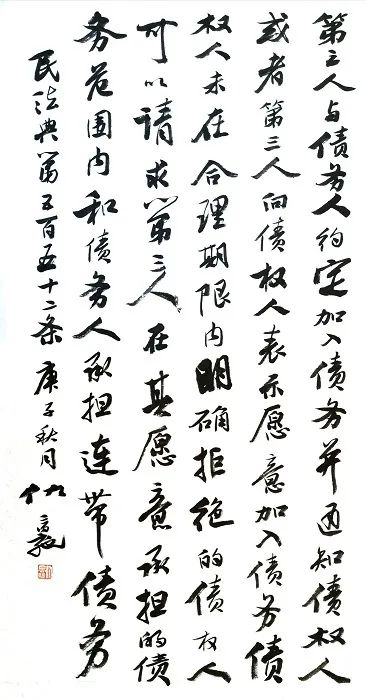 第三人与债务人约定加入债务并通知债权人
或者第三人向债权人表示愿意加入债务债
权人未在合理期限内明确拒绝的债权人
可以请求第三人在其愿意承担的债
务范围内和债务人承担连带债务
民法典第五百五十二条 庚子秋月